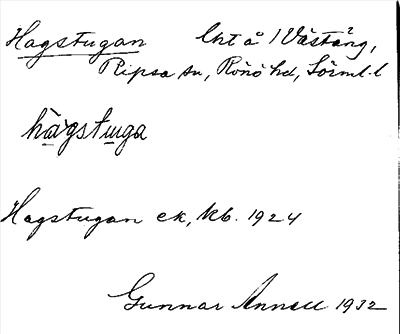 Hagstugan lht å 1 Västäng,
Ripsa sn, Rönö hd, Sörml. l
hàgstuga
Hagstugan ek, kb. 1924
Gunnar Annell 1932